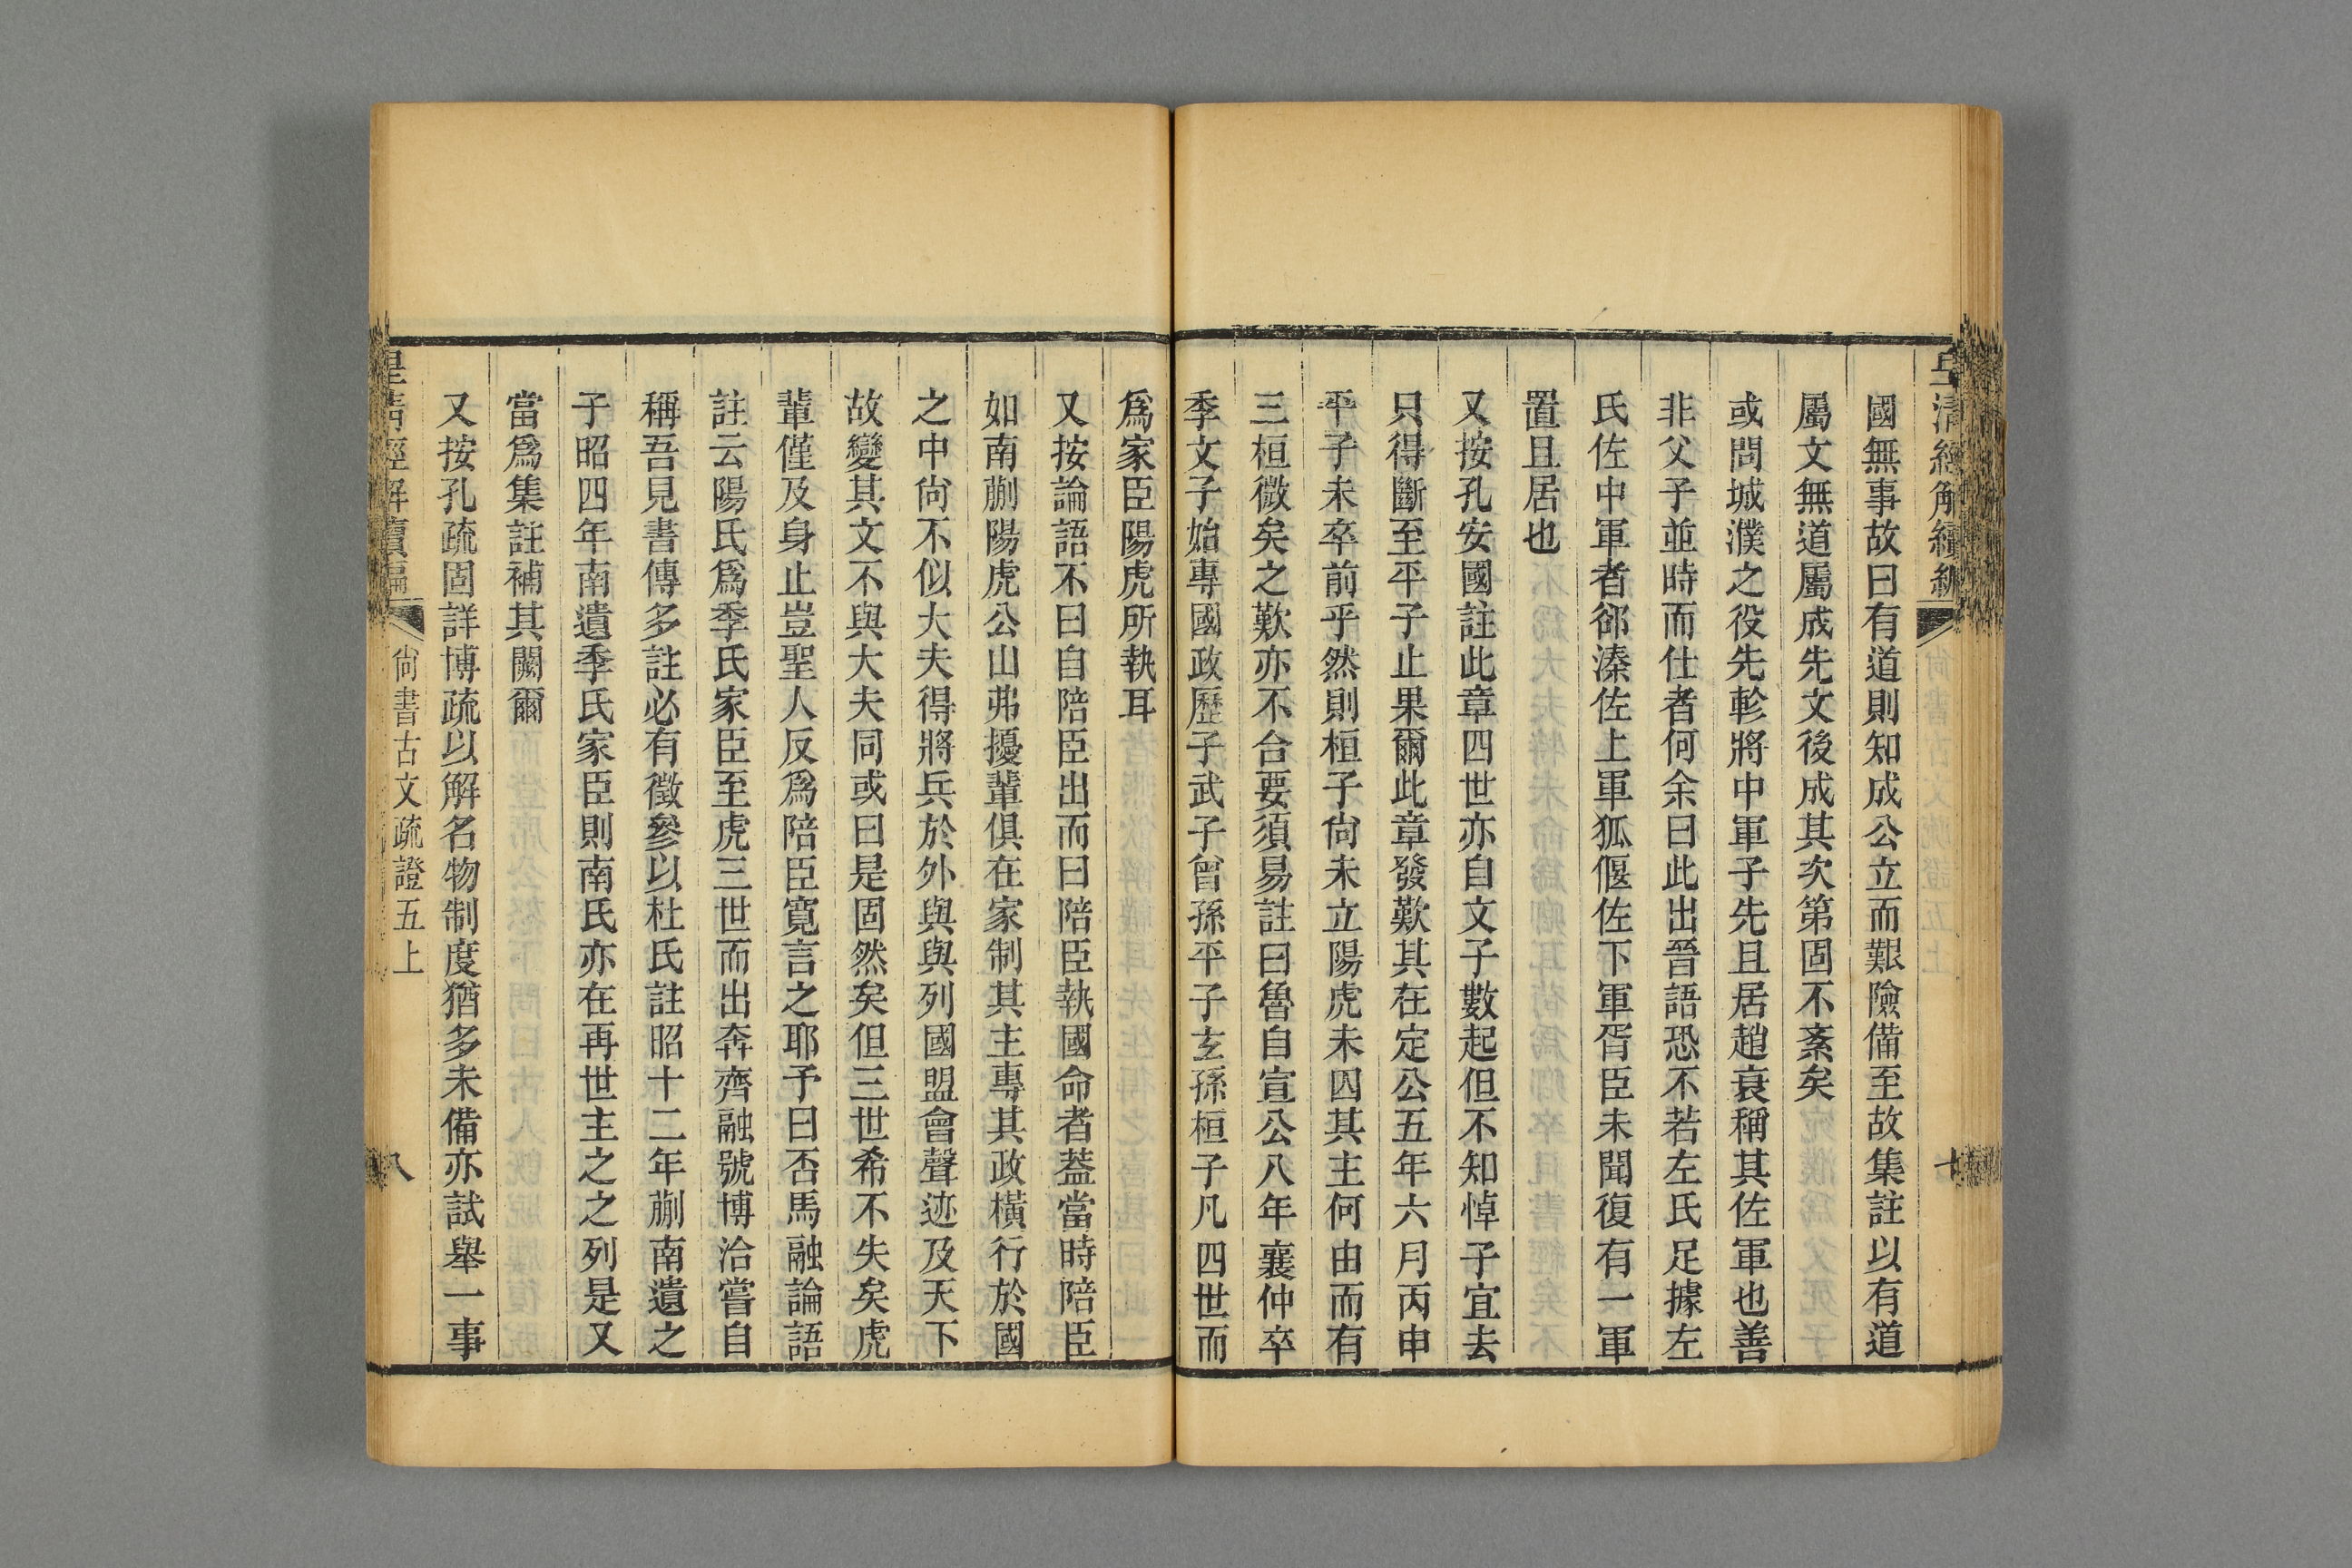 皇清經解續編
國無事故曰有道則知成公立而艱險備至故集註以有道
屬文無道屬成先文後成其次第固不紊矣
或問城濮之役先軫將中軍子先且居趙衰稱其佐軍也善
非父子並時而仕者何余曰此出晉語恐不若左氏足據左
氏佐中軍者郤溱佐上軍狐偃佐下軍胥臣未聞復有一軍
置且居也
又按孔安國註此章四世亦自文子數起但不知悼子宜去
只得斷至平子止果爾此章發歎其在定公五年六月丙申
平子未卒前乎然則桓子尙未立陽虎未囚其主何由而有
三桓微矣之歎亦不合要須易註曰魯自宣公八年襄仲卒
季文子始專國政歷子武子曾孫平子玄孫桓子凡四世而
爲家臣陽虎所執耳
又按論語不曰自陪臣出而曰陪臣執國命者葢當時陪臣
如南蒯陽虎公山弗擾輩俱在家制其主專其政橫行於國
之中尙不似大夫得將兵於外與與列國盟會聲迹及天下
故變其文不與大夫同或曰是固然矣但三世希不失矣虎
輩僅及身止豈聖人反爲陪臣寬言之耶予曰否馬融論語
註云陽氏爲季氏家臣至虎三世而出奔齊融號博洽嘗自
稱吾見書傳多註必有徵參以杜氏註昭十二年蒯南遺之
子昭四年南遺季氏家臣則南氏亦在再世主之之列是又
當爲集註補其闕爾
又按孔疏固詳博疏以解名物制度猶多未備亦試舉一事
皇淸經解續編
尙書古文疏證五上
八